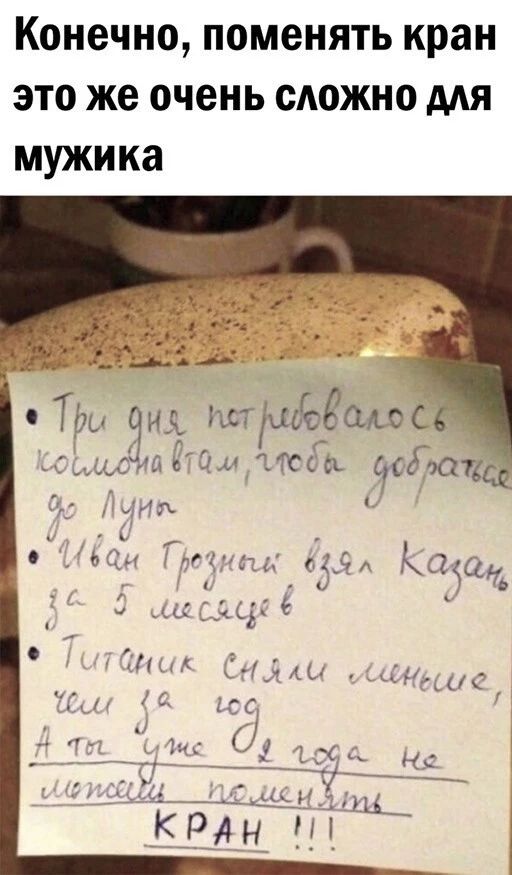 Конечно, поменять кран
это же очень сложно для
мужика
• Три дня потребовалось
космонавтам, чтобы добраться
до Луны
• Иван Грозный взял Казань
за 5 месяцев
• Титаник сняли меньше,
чем за год
А ты уже 2 года не
можешь поменять
КРАН !!!